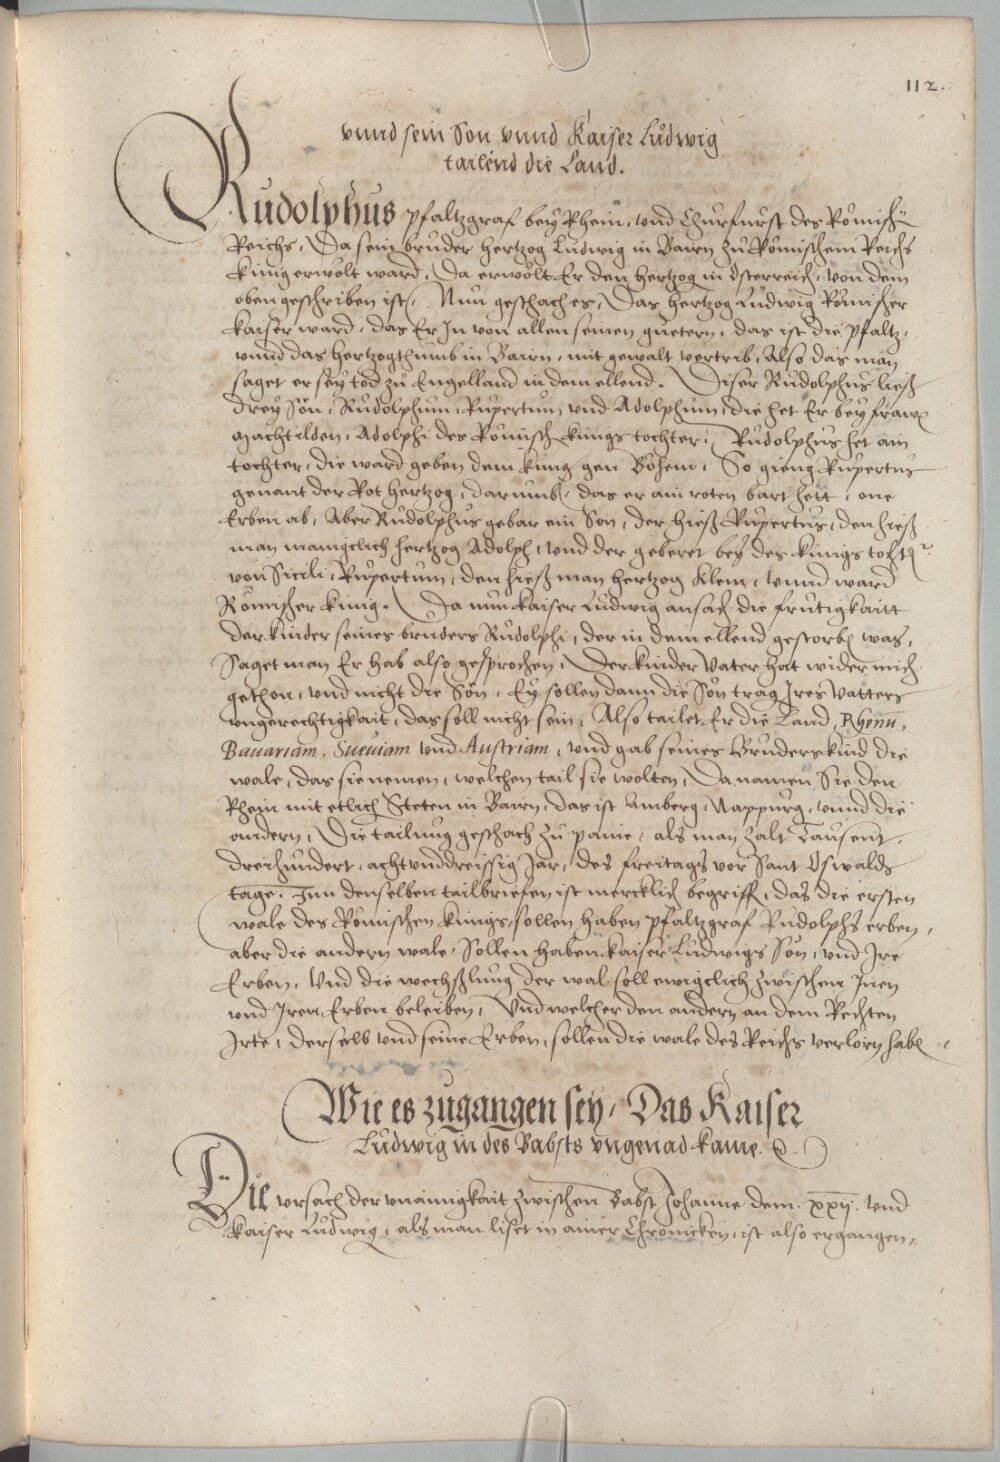 112.
vnnd sein Son vnnd Kaiser Ludwig
tailend die Land.
Rudolphus pfaltzgraf bey Rhein, vnd Churfurst des Römisch
Reichs, Da sein bruder hertzog Ludwig in Bairn zu Römischem Reichs
kunig erwölt ward, Da erwölt Er den hertzog in Österreich, von dem
oben geschriben ist, Nun geschach es, Das hertzog Ludwig Römischer
kaiser ward, das Er Jn von allen seinen guetern, das ist die Pfaltz,
vnnd das hertzogthumb in Bairn, mit gewalt vertrib, Also das man
saget er sey tod zu Engelland in dem ellend. Diser Rudolphus ließ
drey Sön, Rudolphum, Rupertum vnd Adolphum, die het Er bey frawen
Machtilden, Adolphi des Römisch kunigs tochter, Rudolphus het ain
tochter, die ward geben dem kunig gen Böhem, So gieng Rupertus
genant der Rot hertzog, darumb, das er ain roten bart hett, one
Erben ab, Aber Rudolphus gebar ein Son, der hieß Rupertus, den hieß
man maniglich hertzog Adolph, vnd der geberet bey des kunigs tochter
von Sicili, Rupertum, den hieß man hertzog Klem, vnnd ward
Römischer kunig. Da nun kaiser Ludwig ansach die frutigkaitt
der kinder seines bruders Rudolphi, der in dem ellend gestorben was,
Saget man Er hab also gesprochen, Der kinder Vater hat wider mich
gethon, vnd nicht die Sön, Ey sollen dann die Sön trag Jres Vatters
vngerechtigkait, das soll nicht sein, Also tailet Er die Land, Rhenū,
Bauariam, Sueuiam vnd Austriam, vnd gab seines Bruders kind die
wale, das sie nemen, welchen tail sie wolten, Da namen Sie den
Rhein mit etlich Steten in Bairn, das ist Amberg, Nappurg, vnnd die
andern, Die tailung geschach zu pauie, als man zalt Tausent,
dreihundert, achtvnddreissig Jar, des freitags vor Sant Oswalds
tage. Jnn denselben tailbriefen ist mercklich begriffen, das die ersten
wale des Römischen kunigs, sollen haben pfaltzgraf Rudolphs erben,
aber die andern wale, Sollen haben kaiser Ludwigs Sön, vnd Jre
Erben, Vnd die wechßlung der wal soll ewigclich zwischen Jnen
vnd Jren Erben beleiben, Vnd welcher den andern an dem Rechten
Jrte, derselb vnd seine Erben, sollen die wale des Reichs verlorn haben,
Wie es zugangen sey, Das Kaiser
Ludwig in des Babsts vngenad kame.
Die vrsach der vnainigkait zwischen Babst Johanne dem .xxij. vnd
kaiser Ludwig, als man liset in ainer Chronicken, ist also ergangen,